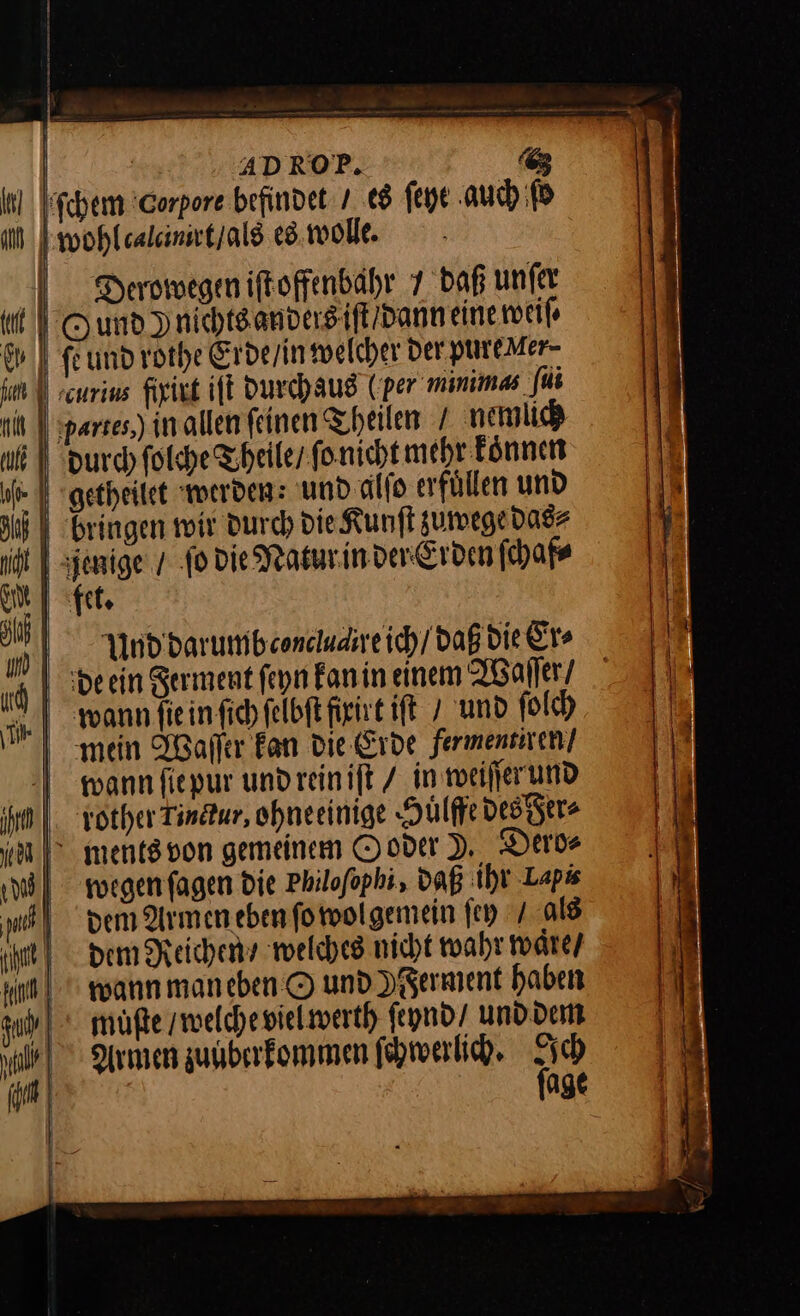 ADROP. 63
ſchem Corpore befindet / es ſeye auch ſo
wohl calcinirt/als es wolle.
Derowegen iſt offenbahr / daß unſer
☉ und ☽ nichts anders iſt/dann eine weiſ⸗
ſe und rothe Erde/in welcher der pure Mer-
curius fixirt iſt durchaus (per minimas ſui
partes,) in allen ſeinen Theilen / nemlich
durch ſolche Theile/ ſo nicht mehr koͤnnen
getheilet werden: und alſo erfuͤllen und
bringen wir durch die Kunſt zuwege das⸗
jenige / ſo die Natur in der Erden ſchaf⸗
fet.
Und darumb concludire ich/ daß die Er⸗
de ein Ferment ſeyn kan in einem Waſſer/
wann ſie in ſich ſelbſt fixirt iſt / und ſolch
mein Waſſer kan die Erde fermentiren/
wann ſie pur und rein iſt / in weiſſer und
rother Tinctur, ohne einige Huͤlffe des Fer⸗
ments von gemeinem ☉ oder ☽. Dero⸗
wegen ſagen die Philoſophi, daß ihr Lapis
dem Armen eben ſo wol gemein ſey / als
dem Reichen/ welches nicht wahr waͤre/
wann man eben ☉ und ☽ Ferment haben
muͤſte / welche viel werth ſeynd/ und dem
Armen zuuͤberkommen ſchwerlich. Ich
ſage